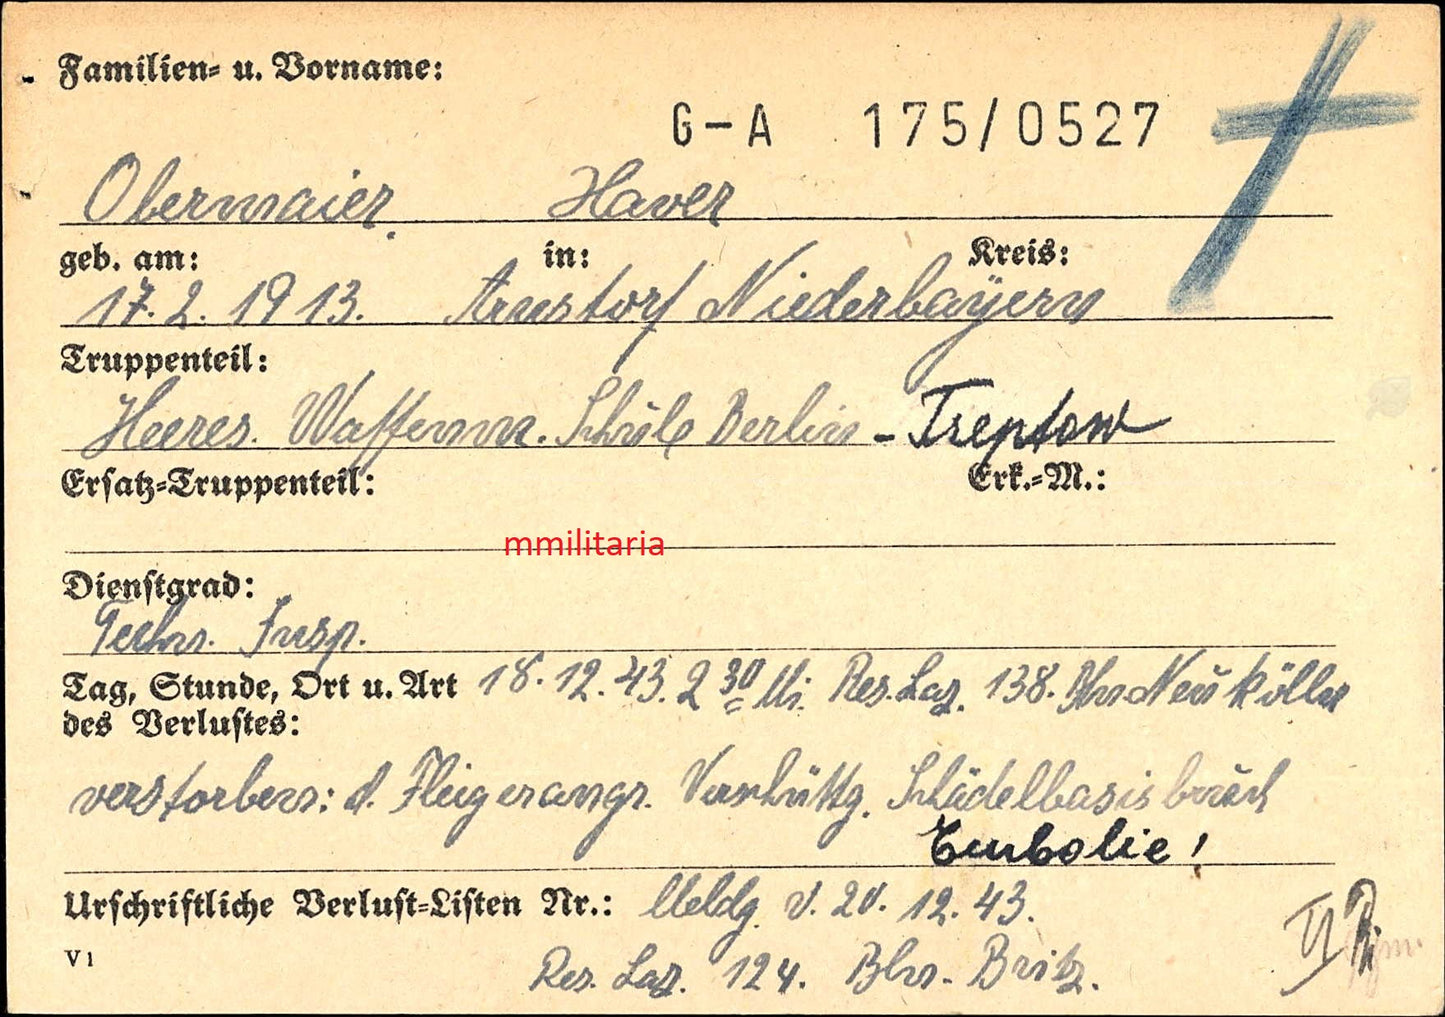 Familien- u. Vorname:
G-A 175/0527
Obermaier, Xaver
geb. am: in: Kreis:
17.2.1913. Arnstorf Niederbayern
Truppenteil:
Heeres. Waffenm. Schule Berlin - Treptow
Ersatz-Truppenteil: Erk.-M.:
mmilitaria
Dienstgrad:
Techn. Insp.
Tag, Stunde, Ort u. Art 18.12.43. 2 30 Res. Laz. 138. Neukölln
des Verlustes:
verstorben: d. Fliegerangr. Schädelbasisbruch
Embolie!
Urschriftliche Verlust-Listen Nr.: Meldg. v. 20.12.43.
V1
Res. Laz. 124. Bln. Britz.